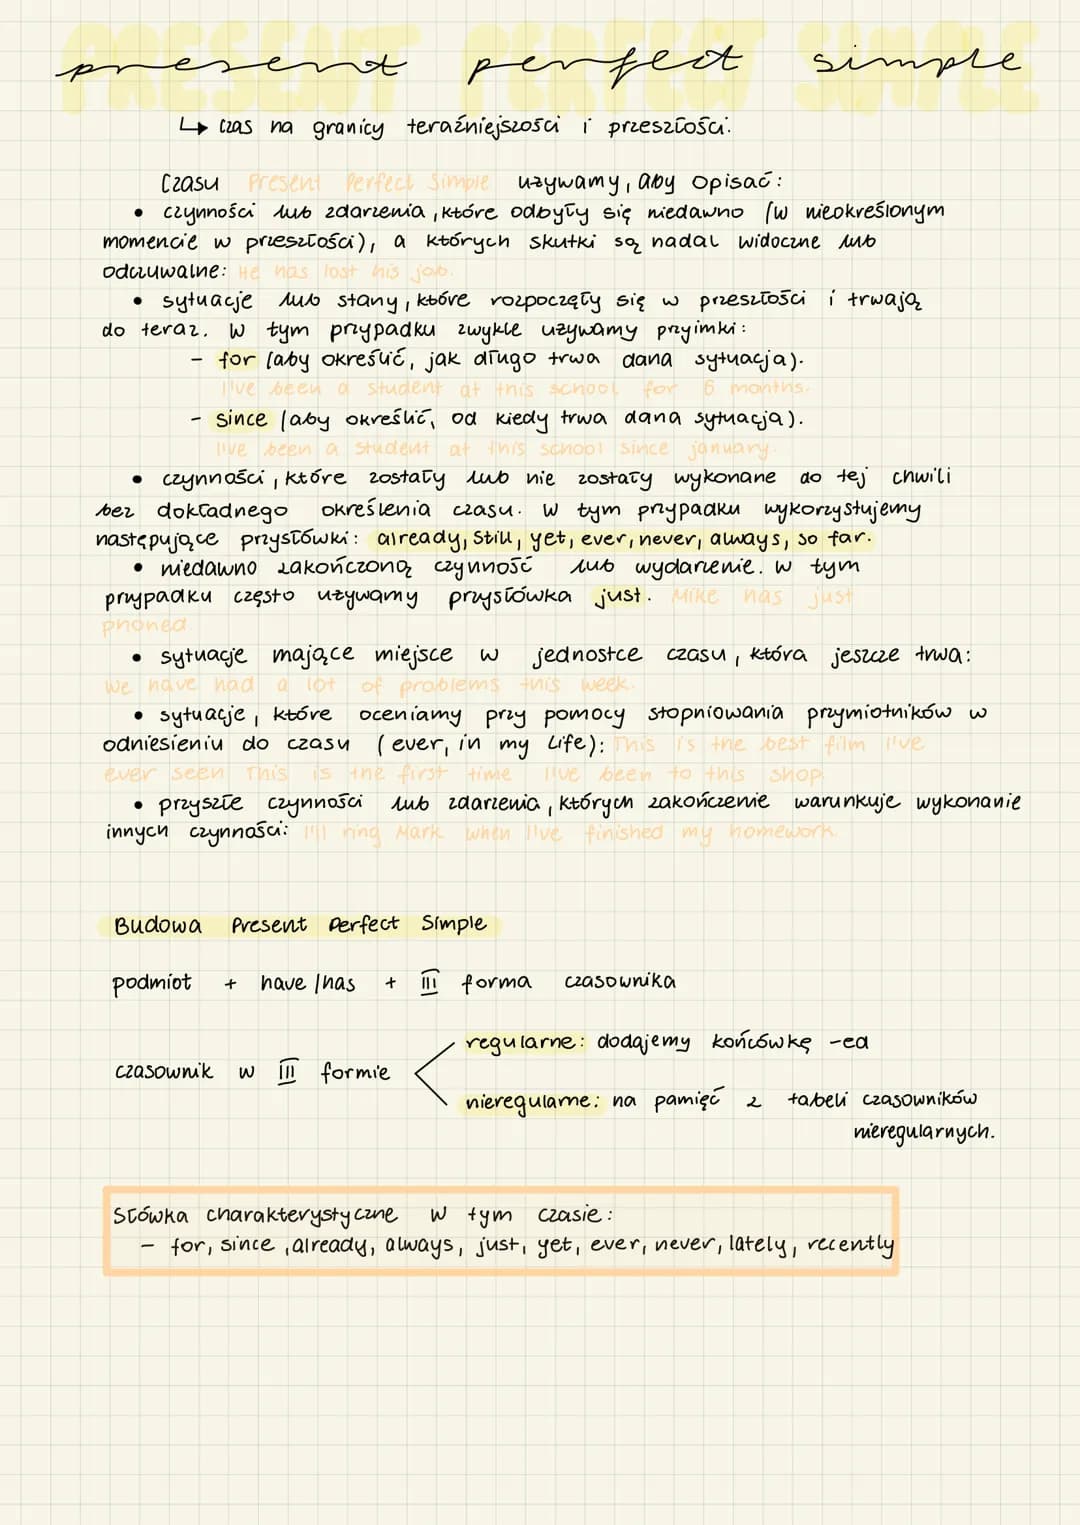 PRESENT PERFECT SIMPLE
present perfect simple
↳ czas na granicy teraźniejszości i przeszłości.
Czasu Present Perfect Simple używamy, aby opisać:
• czynności lub zdarzenia, które odbyły się niedawno (w nieokreślonym
momencie w przeszłości), a których skutki są nadal widoczne lub
odczuwalne: He has lost his job.
• sytuacje lub stany, które rozpoczęły się w przeszłości i trwają
do teraz. W tym przypadku zwykle używamy przyimki:
- for (aby określić, jak długo trwa dana sytuacja).
I've been a student at this school for 6 months.
- since (aby określić, od kiedy trwa dana sytuacja).
I've been a student at this school since january.
• czynności, które zostały lub nie zostały wykonane do tej chwili
bez dokładnego określenia czasu. W tym przypadku wykorzystujemy
następujące przysłówki: already, still, yet, ever, never, always, so far.
• niedawno zakończoną czynność lub wydarzenie. W tym
przypadku często używamy przysłówka just. Mike has just
phoned
• sytuacje mające miejsce w jednostce czasu, która jeszcze trwa:
We have had a lot of problems this week.
• sytuacje, które oceniamy przy pomocy stopniowania przymiotników w
odniesieniu do czasu (ever, in my life): This is the best film I've
ever seen This is the first time I've been to this shop.
• przyszłe czynności lub zdarzenia, których zakończenie warunkuje wykonanie
innych czynności: I'll ring Mark when I've finished my homework.
Budowa Present Perfect Simple
podmiot + have/has + III forma czasownika
regularne: dodajemy końcówkę -ed
czasownik w III formie
nieregularne: na pamięć z tabeli czasowników
nieregularnych.
Słówka charakterystyczne w tym czasie:
- for, since, already, always, just, yet, ever, never, lately, recently